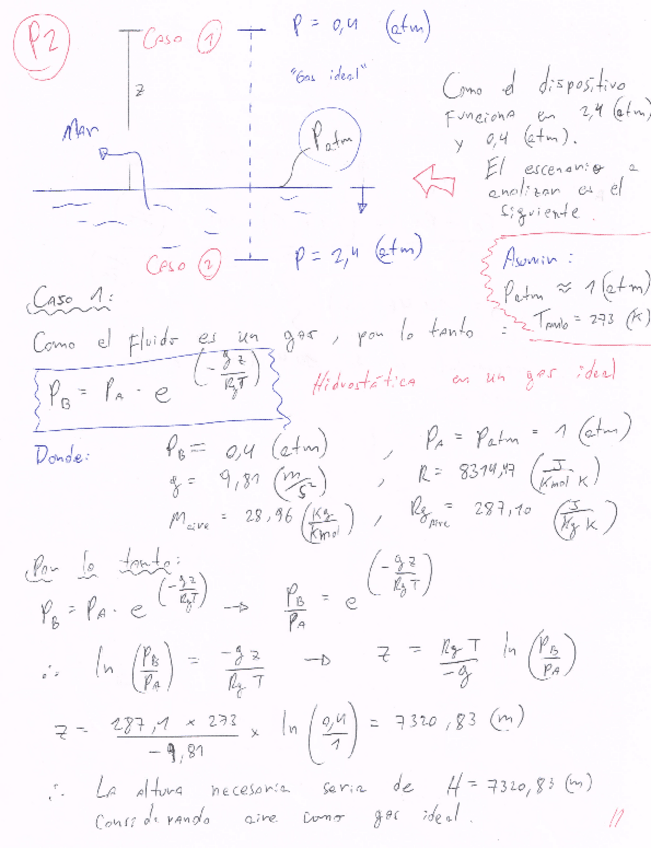 P2
CASO 1
P = 0,4 (atm)
"Gas ideal"
z
Mar
Patm
CASO 2
P = 2,4 (atm)
Como el dispositivo
Funciona en 2,4 (atm)
y 0,4 (atm).
El escenario a
analizar es el
siguiente.
Asumir:
Patm ≈ 1 (atm)
Tamb = 273 (K)
Caso 1:
Como el fluido es un gas, por lo tanto :
P_B = P_A · e^(-gz/RgT)
Hidrostática en un gas ideal
Donde:
P_B = 0,4 (atm) , P_A = Patm = 1 (atm)
g = 9,81 (m/s²) , R = 8314,47 (J/Kmol K)
M aire = 28,96 (Kg/Kmol) , Rg aire = 287,10 (J/Kg K)
Por lo tanto:
P_B = P_A · e^(-gz/RgT) → P_B/P_A = e^(-gz/RgT)
∴ ln (P_B/P_A) = -gz/RgT → z = RgT/-g ln (P_B/P_A)
z = 287,1 × 273/-9,81 × ln (0,4/1) = 7320,83 (m)
∴ La altura necesaria seria de H = 7320,83 (m)
considerando aire como gas ideal.